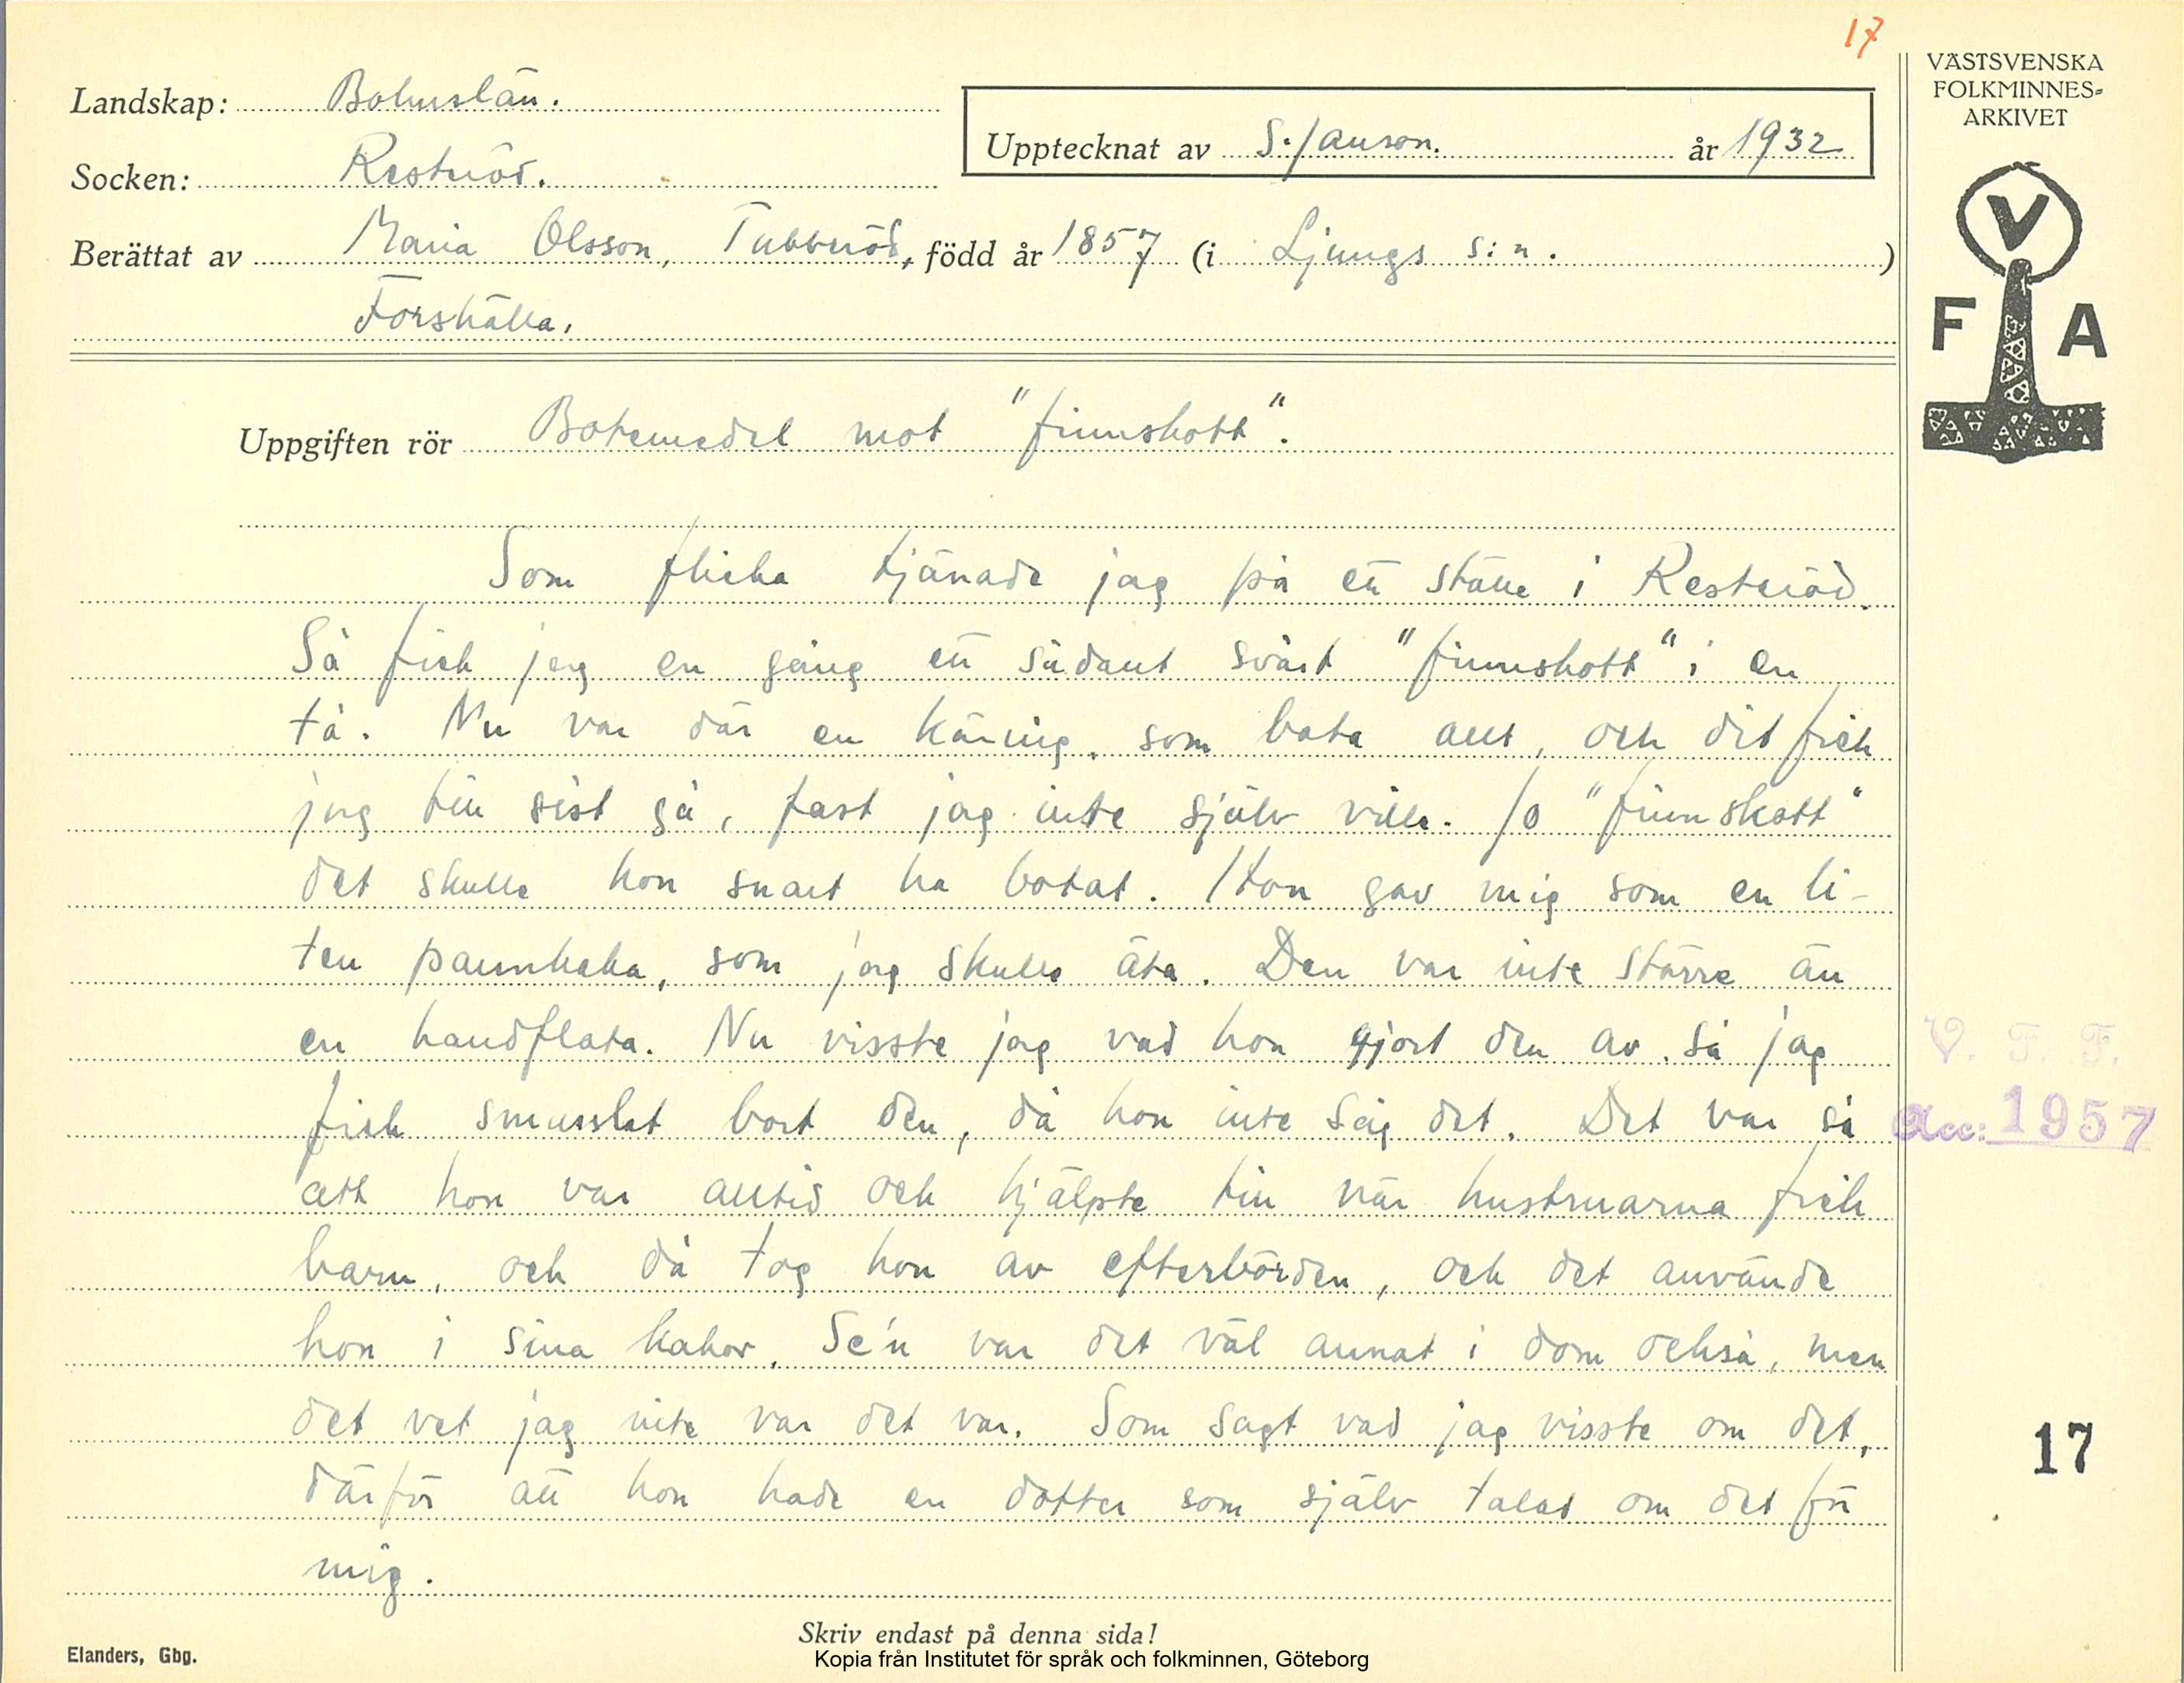 17
VÄSTSVENSKA
FOLKMINNES-
ARKIVET
Landskap: Bohuslän.
Upptecknat av S. Janson. år 1932
Socken: Resteröd.
Berättat av Maria Olsson, Tubberöd, född år 1857 (i Ljungs s:n. )
Forshälla.
V
F A
Uppgiften rör Botemedel mot "finnskott".
Som flicka tjänade jag på ett ställe i Resteröd.
Så fick jag en gång ett sådant svårt "finnskott" i en
tå. Nu var där en käring, som bota allt, och dit fick
jag till sist gå, fast jag inte själv ville. Jo "finnskott"
det skulle hon snart ha botat. Hon gav mig som en li-
ten pannkaka, som jag skulle äta. Den var inte större än
en handflata. Nu visste jag vad hon gjort den av, så jag
fick smusslat bort den, då hon inte såg det. Det var så
att hon var alltid och hjälpte till när hustruarna fick
barn, och då tog hon av efterbörden, och det använde
hon i sina kakor. Se'n var det väl annat i dom också, men
det vet jag inte var det var. Som sagt vad jag visste om det,
därför att hon hade en dotter som själv talat om det för
mig.
V. F. F.
Acc: 1957
17
Skriv endast på denna sida!
Elanders, Gbg.
Kopia från Institutet för språk och folkminnen, Göteborg